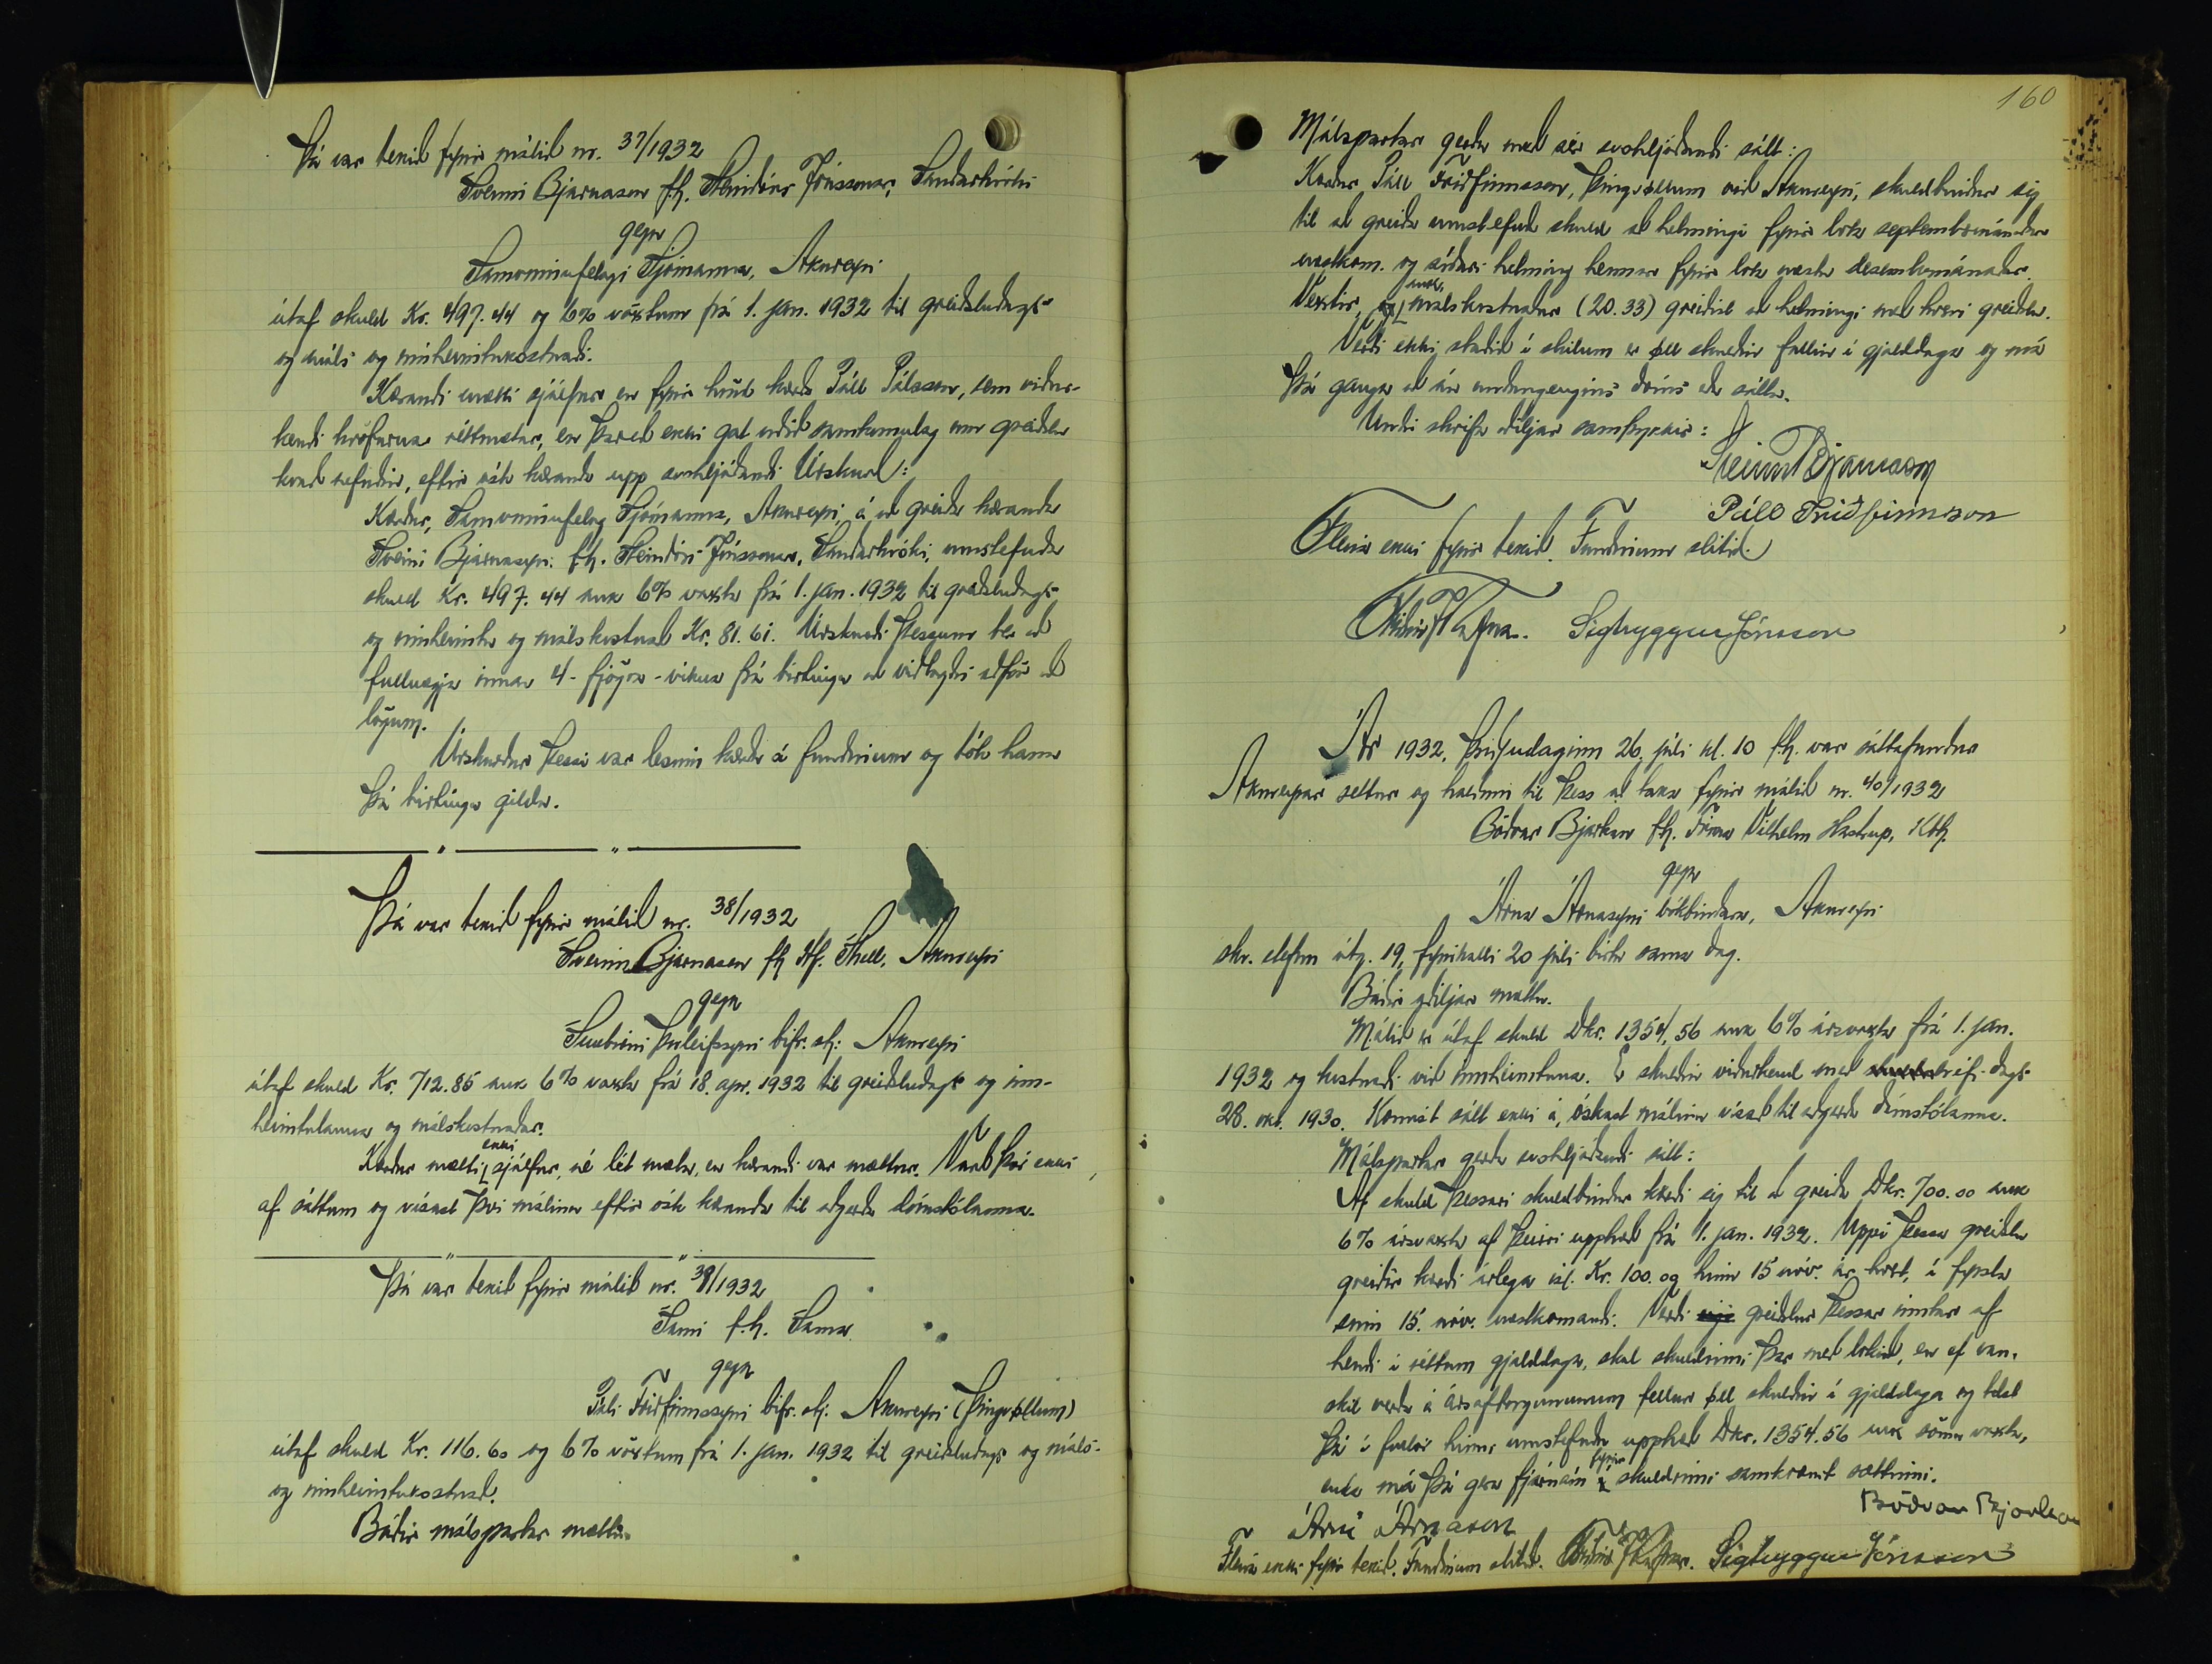 Þá var tekið fyrir málið nr. 37/1932
Sveinn Bjarnason f.h. Steindórs Jónssonar, Sauðárkróki
gegn
Samvinnufelagi Sjómanna, Akureyri
útaf skuld Kr. 497.44 og 6% vöxtum frá 1. jan. 1932 til greiðsludags
og máls og innheimtukostnaði.
Kærandi mætti sjálfur en fyrir hönd kærða Páll Pálsson, sem viður-
kendi kröfuna réttmæta, en þareð ekki gat orðið samkomulag um greiðslu
kvað nefndin, eftir ósk kæranda upp svohljóðandi Úrskurð:
Kærður, Samvinnufelag Sjómanna, Akureyri, á að greiða kæranda
Sveini Bjarnasyni f.h. Steindórs Jónssonar, Sauðárkróki, umstefnda
skuld Kr. 497.44 auk 6% vaxta frá 1. jan. 1932 til greiðsludags
og innheimtu og málskostnað Kr. 81.61. Úrskurði þessum ber að
fullnægja innan 4 - fjögra - vikna frá birtingu að viðlagðri aðför að
lögum.
Úrskurður þessi var lesinn kærða á fundinum og tók hann
þá birtingu gilda.
Þá var tekið fyrir málið nr. 38/1932
Sveinn Bjarnason f.h. Hf. Shell, Akureyri
gegn
Þorleifssyni bifr. stj. Akureyri
útaf skuld Kr. 712.85 auk 6% vaxta frá 18. apr. 1932 til greiðsludags og inn-
heimtulauna og málskostnaðar.
Kærður mætti ekki sjálfur, né lét mæta, en kærandi var mættur. Varð því ekki
af sáttum og vísast því málinu eftir ósk kæranda til aðgerða dómstólanna.
Þá var tekið fyrir málið nr. 39/1932
Sami f.h. Sama
gegn
Páli Friðfinnssyni bifr. stj. Akureyri (Þingvöllum)
útaf skuld Kr. 116.60 og 6% vöxtum frá 1. jan. 1932 til greiðsludags og máls-
og innheimtukostnað.
Báðir málspartar mættu.
160
Málspartar gerðu með sér svohljóðandi sátt:
Kærður Páll Friðfinnsson, Þingvöllum við Akureyri, skuldbindur sig
til að greiða umstefnda skuld að helmingi fyrir lok septembermánaðar
næstkom. og síðari helming hennar fyrir lok næsta desembermánaðar.
Vextir, og málskostnaður (20.33) greiðist að helmingi með hverri greiðslu.
Verði ekki staðið í skilum er öll skuldin fallin í gjalddaga og má
þá ganga að án undangengins dóms eða sátta.
Undirskrifa aðiljar samþykkir:
Sveinn Bjarnason
Páll Friðfinnsson
Fleira ekki fyrir tekið. Fundinum slitið.
Sigtryggur Jónsson
Ár 1932, þriðjudaginn 26. júlí kl. 10 f.h. var sáttafundur
Akureyrar settur og haldinn til þess að taka fyrir málið nr. 40/1932
Böðvar Bjarkan f.h. Firma Vilhelm Hastrup, Kbh.
gegn
Árna Árnasyni bókbindara, Akureyri
skv. stefnu útg. 19, fyrirkalli 20 júlí birt sama dag.
Báðir aðiljar mættu.
Málið er útaf skuld Dkr. 1354,56 auk 6% ársvaxta frá 1. jan.
1932 og kostnaði við innheimtuna. Er skuldin viðurkend með skuldabréfi dags
28. okt. 1930. Komist sátt ekki á, óskast málinu vísað til aðgerða dómstólanna.
Málspartar gerðu svohljóðandi sátt:
Af skuld þessari skuldbindur kærði sig til að greiða Dkr. 700.00 auk
6% ársvaxta af þeirri upphæð frá 1. jan. 1932. Uppí þessa greiðslu
greiðir kærði árlega ísl. Kr. 100. og hinn 15 nóv. ár hvert, í fyrsta
sinn 15. nóv. næstkomandi. Verði greiðslur þessar inntar af
hendi í réttum gjalddaga, skal skuldinni þar með lokið, en ef van-
skil verða á ársafborgununum fellur öll skuldin í gjalddaga og telst
þá í fullri hinni umstefndu upphæð Dkr. 1354.56 auk sömu vaxta,
enda má þá gera fjárnám fyrir skuldinni samkvæmt sættinni.
Böðvar Bjarkan
Árni Árnason
Fleira ekki fyrir tekið. Fundinum slitið. Sigtryggur Jónsson